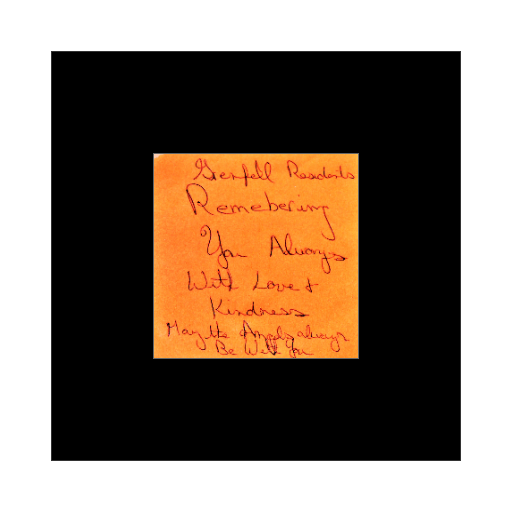 Grenfell Residents
Remebering
You Always
With Love &
Kindness
May the Angels always
Be With You